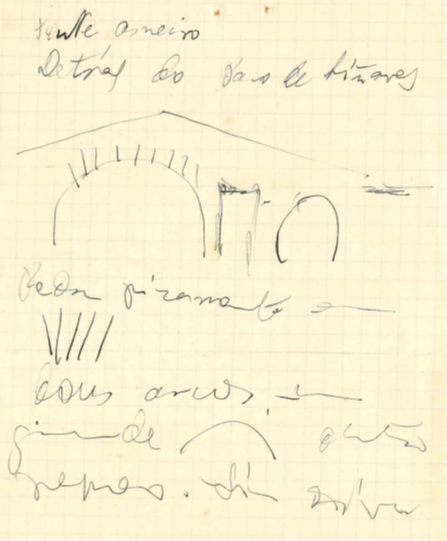 Ponte romeiro
Detrás do Pazo de Liñares
Pedra pizarrante en
dous arcos, un
grande outro
pequeno. Sin